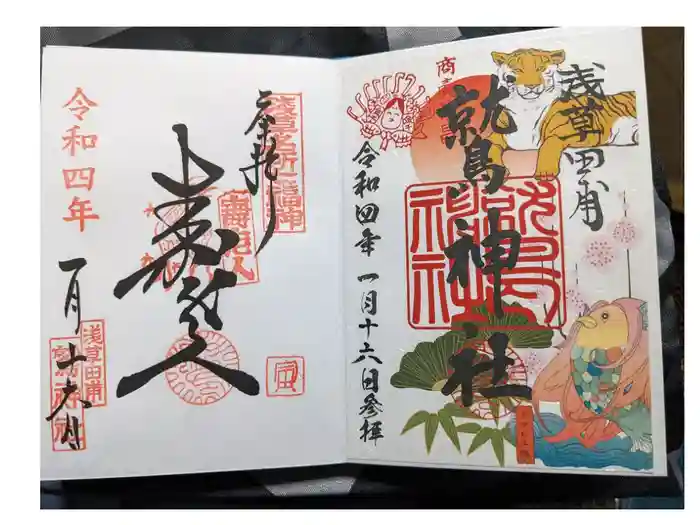 浅草田甫
鷲神社
鷲神社
令和四年一月十六日參拝
浅草名所七福神
奉拝
壽老人
寿老人
令和四年
一月十六日
浅草田甫
鷲神社